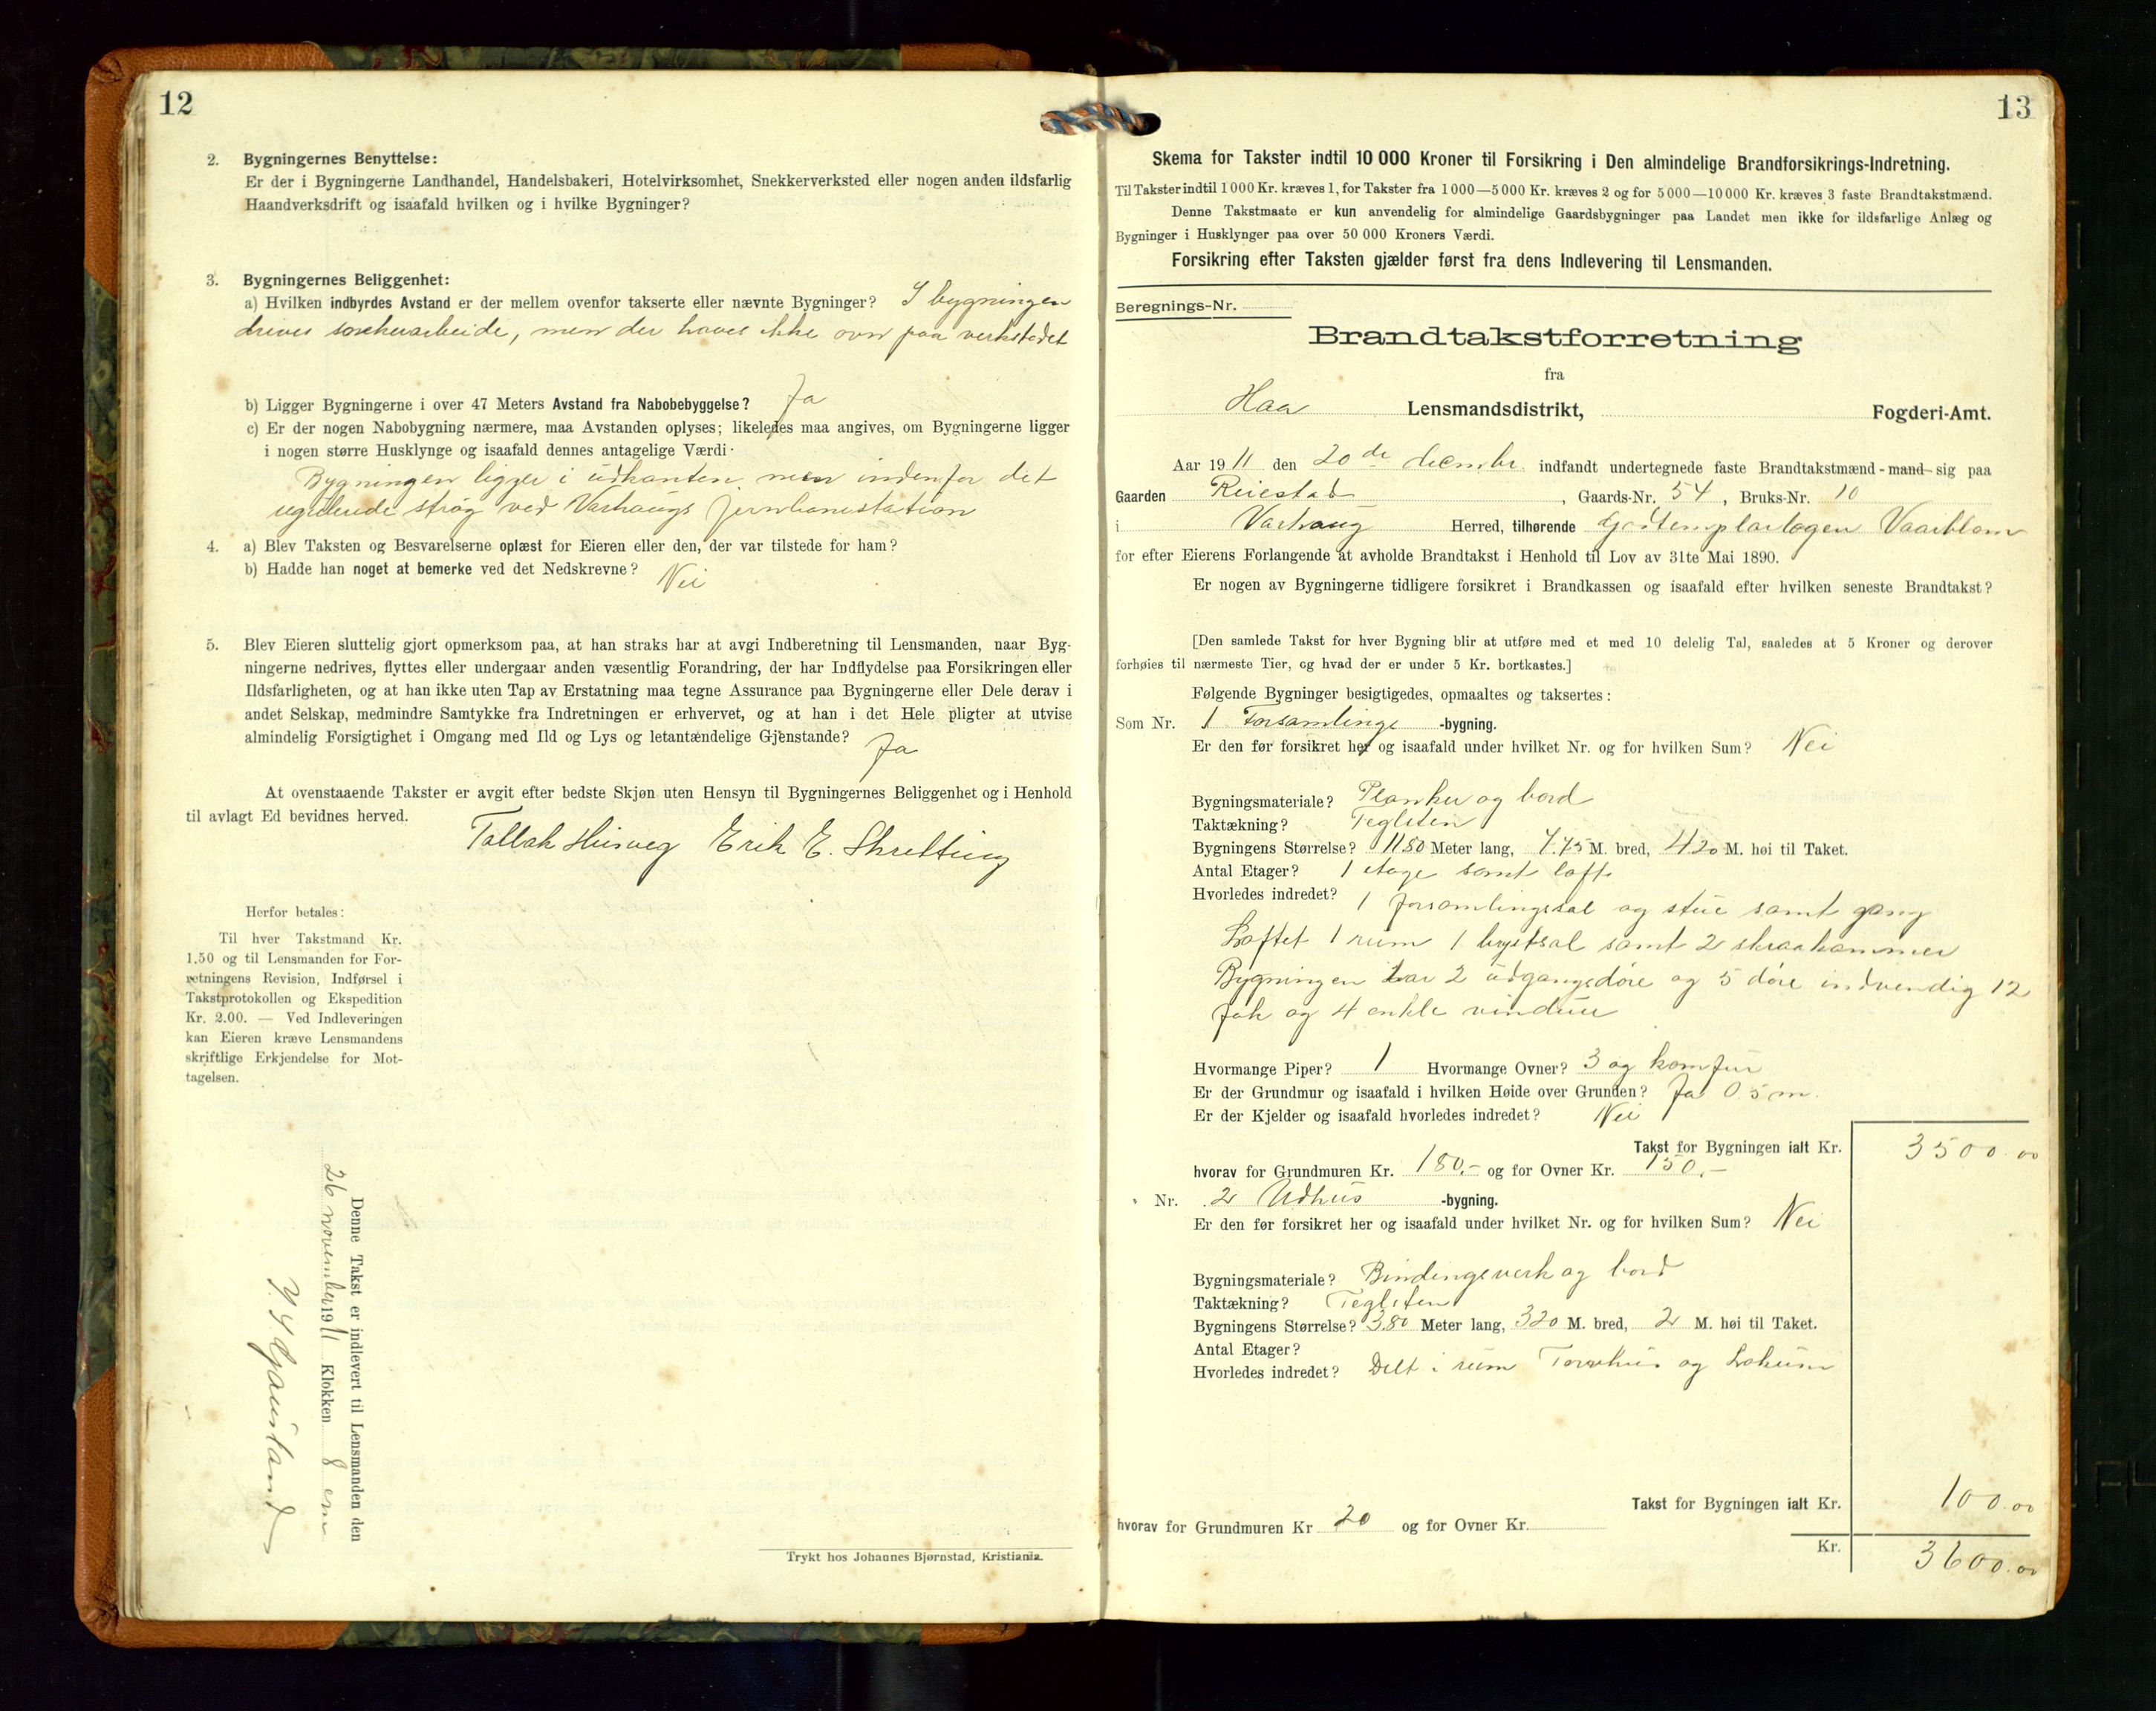 12
2. Bygningernes Benyttelse:
Er der i Bygningerne Landhandel, Handelsbakeri, Hotelvirksomhet, Snekkerverksted eller nogen anden ildsfarlig
Haandverksdrift og isaafald hvilken og i hvilke Bygninger?
3. Bygningernes Beliggenhet:
a) Hvilken indbyrdes Avstand er der mellem ovenfor takserte eller nævnte Bygninger? I bygningen
drives snekerarbeide, men der haves ikke ovn paa verkstedet
b) Ligger Bygningerne i over 47 Meters Avstand fra Nabobebyggelse? Ja
c) Er der nogen Nabobygning nærmere, maa Avstanden oplyses; likeledes maa angives, om Bygningerne ligger
i nogen større Husklynge og isaafald dennes antagelige Værdi.
Bygningen ligger i udkanten, men indenfor det
strøg ved Varhaugs Jernbanestation
4. a) Blev Taksten og Besvarelserne oplæst for Eieren eller den, der var tilstede for ham?
b) Hadde han noget at bemerke ved det Nedskrevne? Nei
5. Blev Eieren sluttelig gjort opmerksom paa, at han straks har at avgi Indberetning til Lensmanden, naar Byg-
ningerne nedrives, flyttes eller undergaar anden væsentlig Forandring, der har Indflydelse paa Forsikringen eller
Ildsfarligheten, og at han ikke uten Tap av Erstatning maa tegne Assurance paa Bygningerne eller Dele derav i
andet Selskap, medmindre Samtykke fra Indretningen er erhvervet, og at han i det Hele pligter at utvise
almindelig Forsigtighet i Omgang med Ild og Lys og letantændelige Gjenstande? Ja
At ovenstaaende Takster er avgit efter bedste Skjøn uten Hensyn til Bygningernes Beliggenhet og i Henhold
til avlagt Ed bevidnes herved.
Tallak Husveg Erik E. Skretting
Herfor betales:
Til hver Takstmand Kr.
1.50 og til Lensmanden for For-
retningens Revision, Indførsel i
Takstprotokollen og Ekspedition
Kr. 2.00. — Ved Indleveringen
kan Eieren kræve Lensmandens
skriftlige Erkjendelse for Mot-
tagelsen.
Denne Takst er indlevert til Lensmanden den
26 november 1911 Klokken 8 em
Gausland
Trykt hos Johannes Bjørnstad, Kristiania.
13
Skema for Takster indtil 10 000 Kroner til Forsikring i Den almindelige Brandforsikrings-Indretning.
Til Takster indtil 1000 Kr. kræves 1, for Takster fra 1000—5000 Kr. kræves 2 og for 5000—10000 Kr. kræves 3 faste Brandtakstmænd.
Denne Takstmaate er kun anvendelig for almindelige Gaardsbygninger paa Landet men ikke for ildsfarlige Anlæg og
Bygninger i Husklynger paa over 50 000 Kroners Værdi.
Forsikring efter Taksten gjælder først fra dens Indlevering til Lensmanden.
Beregnings-Nr.
Brandtakstforretning
fra
Haa Lensmandsdistrikt, Fogderi-Amt.
Aar 1911 den 20de decembr. indfandt undertegnede faste Brandtakstmænd-mand-sig paa
Gaarden Reiestad, Gaards-Nr. 54, Bruks-Nr. 10
i Varhaug Herred, tilhørende Godtemplarlogen Vaarblom
for efter Eierens Forlangende at avholde Brandtakst i Henhold til Lov av 31te Mai 1890.
Er nogen av Bygningerne tidligere forsikret i Brandkassen og isaafald efter hvilken seneste Brandtakst?
[Den samlede Takst for hver Bygning blir at utføre med et med 10 delelig Tal, saaledes at 5 Kroner og derover
forhøies til nærmeste Tier, og hvad der er under 5 Kr. bortkastes.]
Følgende Bygninger besigtigedes, opmaaltes og taksertes:
Som Nr. 1 Forsamlings -bygning.
Er den før forsikret her og isaafald under hvilket Nr. og for hvilken Sum? Nei
Bygningsmateriale? Planker og bord
Taktækning? Teglsten
Bygningens Størrelse? 11.80 Meter lang, 7.45 M. bred, 4.20 M. høi til Taket.
Antal Etager? 1 etage samt loft
Hvorledes indredet? 1 forsamlingssal og stue samt gang
Loftet 1 rum 1 samt 2 skraakammer
Bygningen har 2 udgangsdøre og 5 døre indvendig 12
fak og 4 enkle vinduer
Hvormange Piper? 1 Hvormange Ovner? 3 og komfur
Er der Grundmur og isaafald i hvilken Høide over Grunden? Ja 0.5 m.
Er der Kjelder og isaafald hvorledes indredet? Nei
Takst for Bygningen ialt Kr. 3500.00
hvorav for Grundmuren Kr. 180.- og for Ovner Kr. 150.-
Nr. 2 Udhus -bygning.
Er den før forsikret her og isaafald under hvilket Nr. og for hvilken Sum? Nei
Bygningsmateriale? Bindingsverk og bord
Taktækning? Teglsten
Bygningens Størrelse? 3.80 Meter lang, 320 M. bred, 2 M. høi til Taket.
Antal Etager?
Hvorledes indredet? Delt i rum Torvhus og Lokum
Takst for Bygningen ialt Kr. 100.00
hvorav for Grundmuren Kr 20 og for Ovner Kr.
Kr. 3600.00